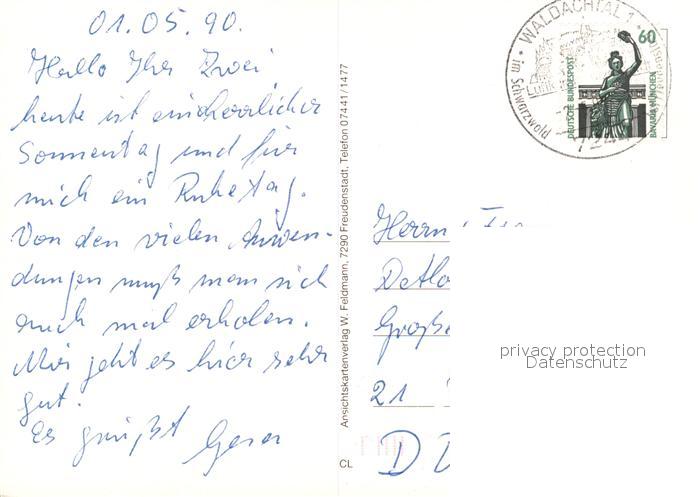 01.05.90.
Hallo Ihr Zwei,
heute ist ein herrlicher
Sonnentag und für
mich ein Ruhetag.
Von den vielen Anwen-
dungen muß man sich
auch mal erholen.
Mir geht es hier sehr
gut.
Es grüßt
Ansichtskartenverlag W. Feldmann, 7290 Freudenstadt, Telefon 07441/1477
CL
WALDACHTAL 1
im Schwarzwald
60
DEUTSCHE BUNDESPOST
BAVARIA MÜNCHEN
Herrn
Detlo
Große
21
D
privacy protection
Datenschutz